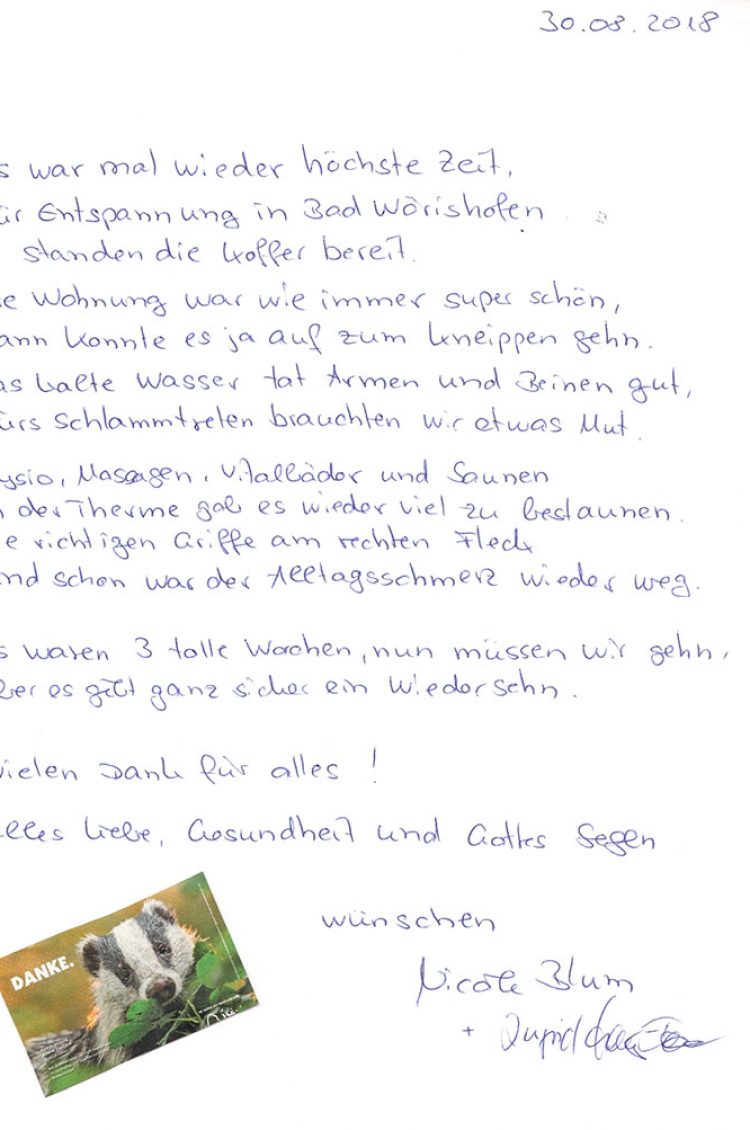 30.08.2018
s war mal wieder höchste Zeit,
ür Entspannung in Bad Wörishofen
standen die Koffer bereit.
e Wohnung war wie immer super schön,
ann konnte es ja auf zum kneippen gehn.
as kalte Wasser tat Armen und Beinen gut,
ürs Schlammtreten brauchten wir etwas Mut.
ysio, Massagen, Vitalbäder und Saunen
n der Therme gab es wieder viel zu bestaunen.
e richtigen Griffe am rechten Fleck
nd schon war der Alltagsschmerz wieder weg.
s waren 3 tolle Wochen, nun müssen wir gehn,
ber es gibt ganz sicher ein Wiedersehn.
ielen Dank für alles !
lles Liebe, Gesundheit und Gottes Segen
wünschen
DANKE.
Nicole Blum
+